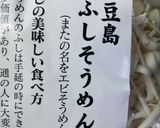 豆島
ふしそうめん
(またの名をエビそうめん
しの美味しい食べ方
めんのふしは手延の時にでき
価値があり、通の人に大変